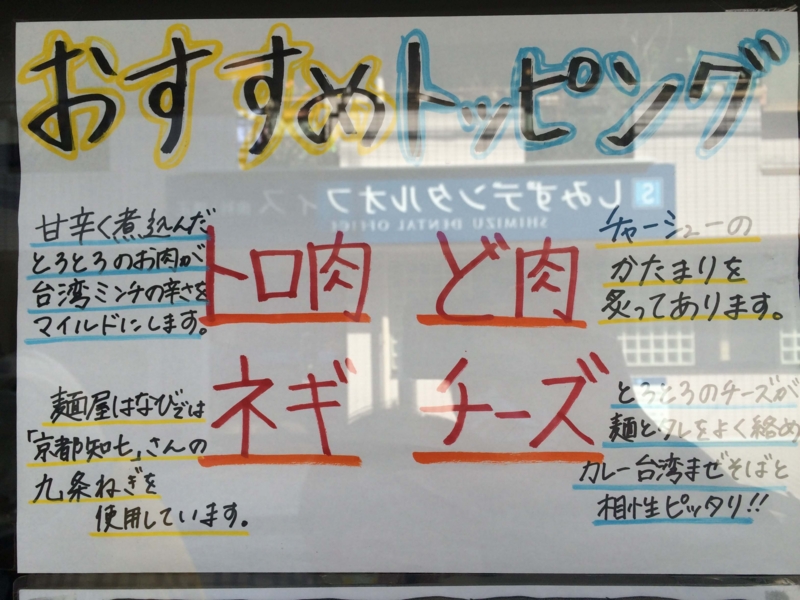 おすすめトッピング
甘辛く煮込んだ
とろとろのお肉が
台湾ミンチの辛さを
マイルドにします。
トロ肉
ど肉
チャーシューの
かたまりを
炙ってあります。
麺屋はなびでは
「京都知七」さんの
九条ねぎを
使用しています。
ネギ
チーズ
とろとろのチーズが
麺とタレをよく絡め
カレー台湾まぜそばと
相性ピッタリ!!
しみずデンタルオフィス
SHIMIZU DENTAL OFFICE